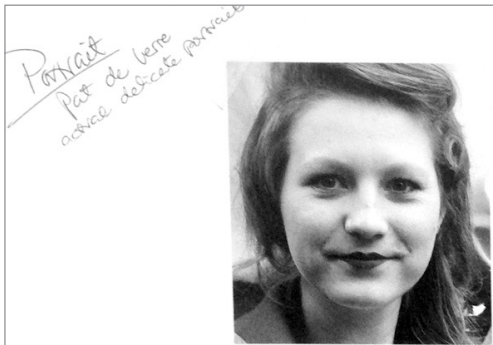 Portrait
Pat de verre
actual delicate portraits